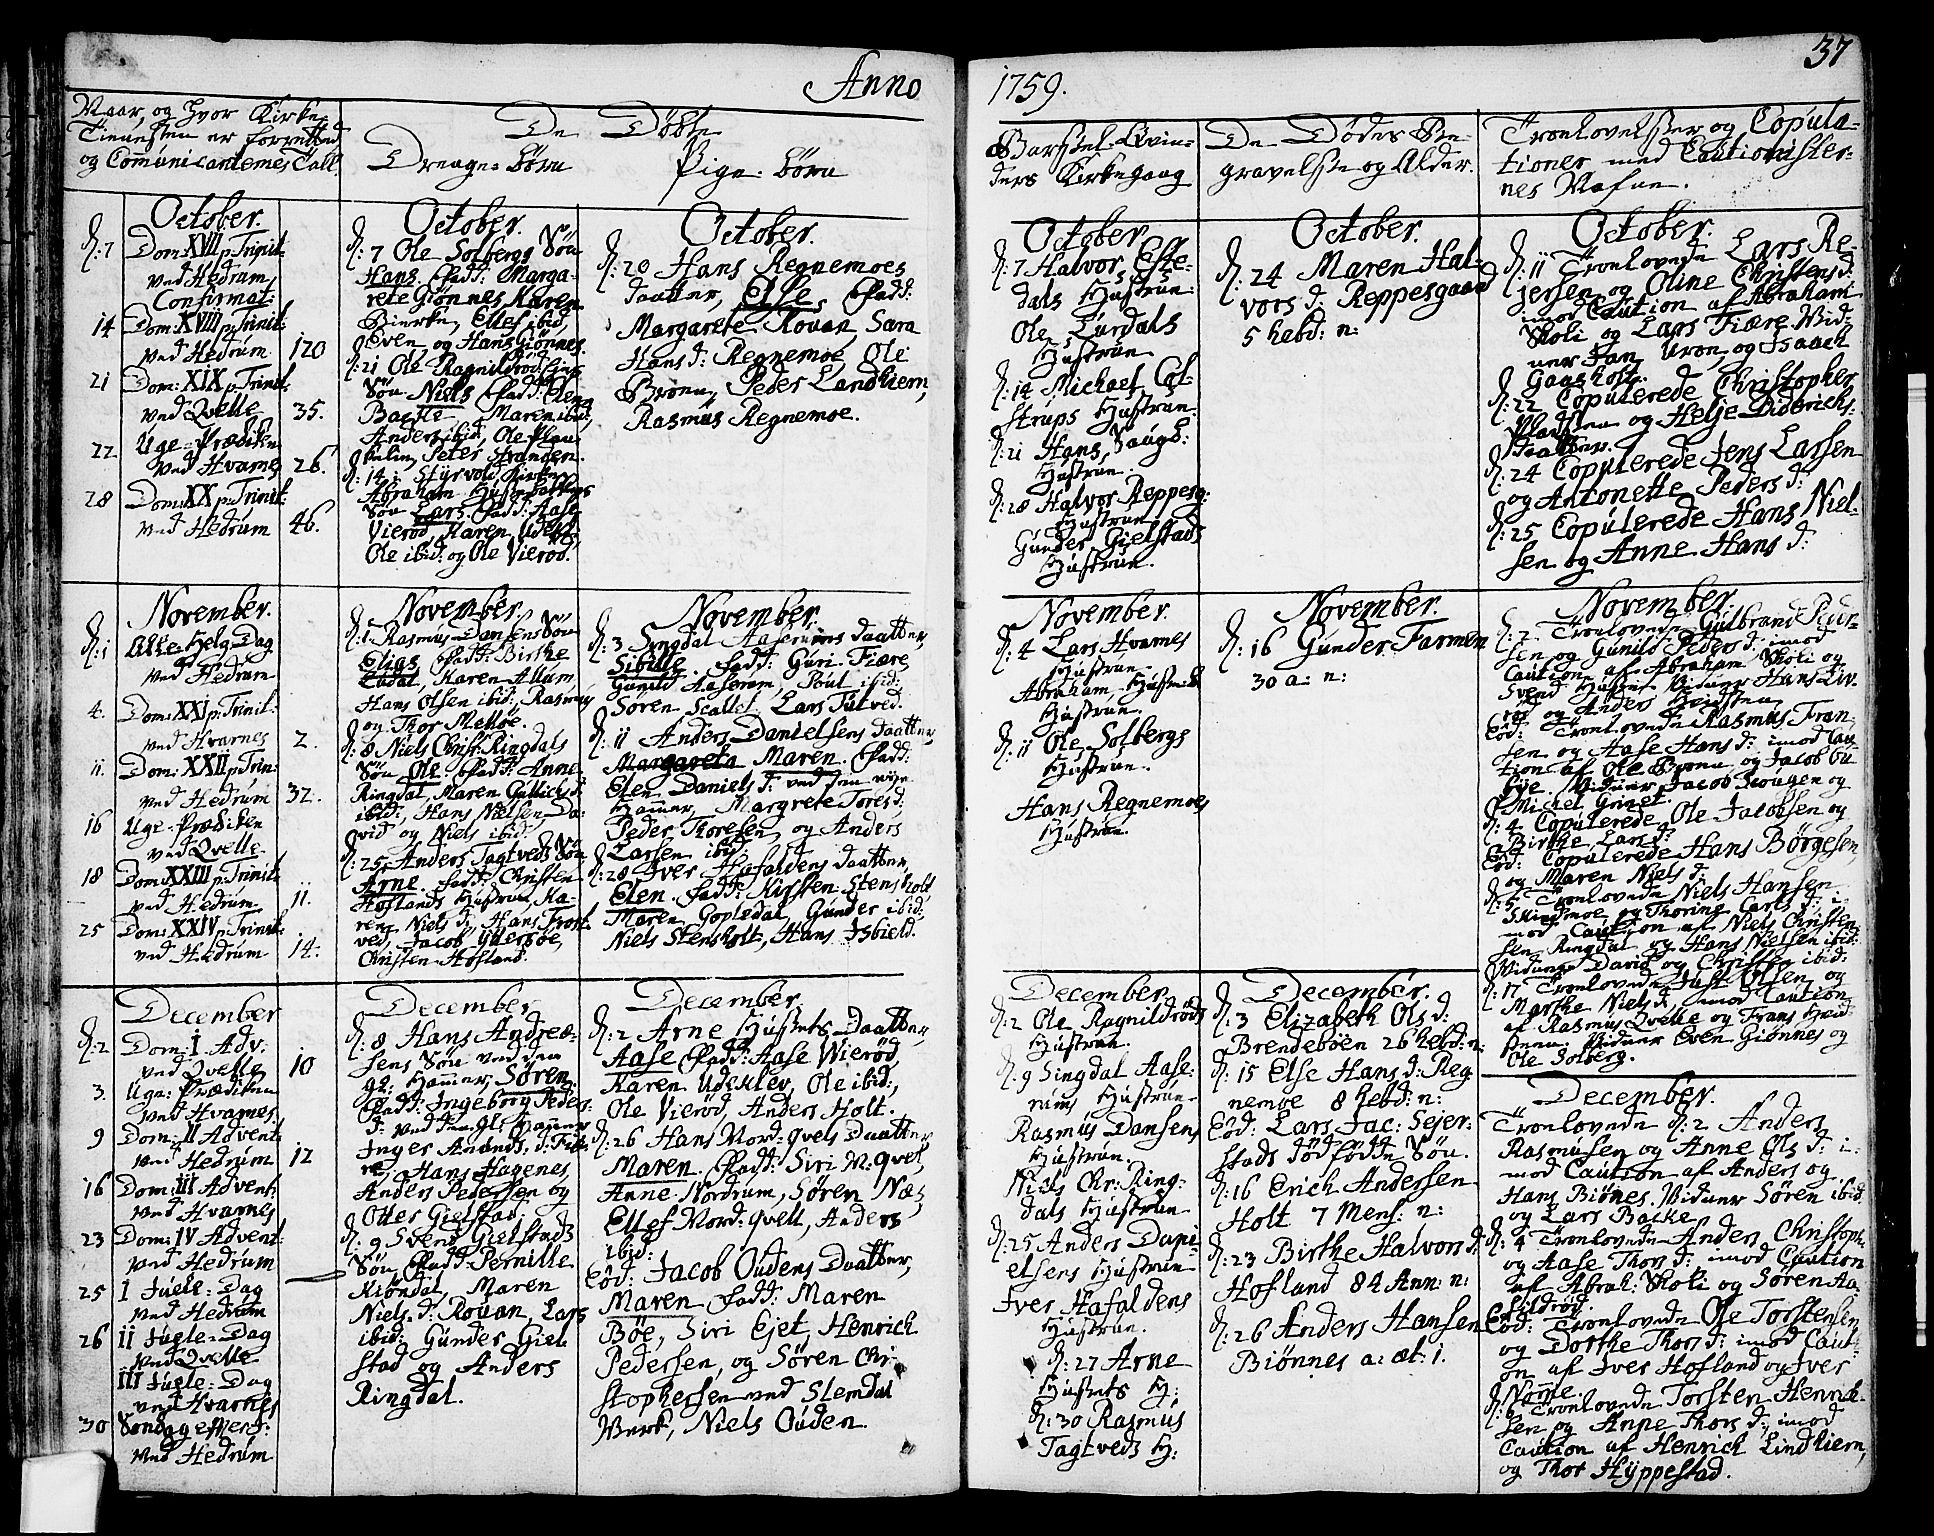 Anno
Naar, og hvor Kirke-
Tienesten er forretted
og Comunicanternes Tall.
De Døbte
Drenge-børn
Pige-børn
October.
d: 7 Dom: XVII p: Trinit:
ved Hedrum,
Confirmat:
14 Dom: XVIII p: Trinit:
ved Hedrum 120
21 Dom: XIX p: Trinit:
ved Qvelle 35.
22 Uge-Prædiken
ved Hvarnes 26.
28 Dom: XX p: Trinit:
ved Hedrum 46.
November.
d: 1 Alle-Helg-Dag
ved Hedrum
4. Dom: XXI p: Trinit:
ved Hvarnes 2.
11. Dom: XXII p: Trin:
ved Hedrum 32.
16 Uge-Prædiken
ved Qvelle.
18 Dom: XXIII p: Trinit:
ved Hedrum 11.
25 Dom: XXIV p: Trinit:
ved Hedrum 14.
December
d: 2 Dom: I Adv:
ved Qvelle 10
3. Uge-Prædiken
ved Hvarnes.
9 Dom: II Advent:
ved Hedrum 12
16 Dom: III Advent:
ved Hvarnes
23 Dom: IV Advent:
ved Hedrum
25 I Juele-Dag
ved Hedrum
26 II Juele-Dag
ved Qvelle
III Juele-Dag
ved Hvarnes
30 Søndag
ved Hedrum
October.
d: 7 Ole Solbergs Søn
Hans. Fadd: Marga-
rete Giønnes, Karen
Bierke, Ellef ibid,
Even og Hans Giønnes.
d: 21 Ole Ragnildrød
Søn Niels Fadd: Elena
Backe Maren ibid,
Anders ibid, Ole
Peter Stranden.
d: 14 i Styrvold Kirke
Abraham
Søn Lars Fadd: Aase
Vierød, Karen Udekl:
Ole ibid: og Ole Vierød.
November.
d: 1. Rasmus Dansens Søn
Elias Fadd: Birthe
Karen Allum
Hans Olsen ibid: Rasmus
og Thor Melløe.
d: 8 Niels Christ: Ringdals
Søn Ole. Fadd: Anne
Ringdal, Maren Gullichs d:
ibid: Hans Nielsen Da-
vid og Niels ibid:
d: 25. Anders Tagtveds Søn
Arne. Fadd: Christen
Hoflands Hustrue, Ka-
ren Niels d: Hans Trost-
ved, Jacob Ytterbøe,
Christen Hofland.
December
d: 8 Hans Andreæ-
sens Søn ved den
gl: Hamer, Søren.
Fadd: Ingeborg Peders
d: ved den gl: Hamer
Inger Anunds: d:
Hans Hagenes,
Anders Pedersen og
Otter Gielstad.
d: 9 Svend Gielstads
Søn Fadd: Pernille
Kiøndal, Maren
Niels: d: Rouan, Lars
ibid: Gunder Giel
stad og Anders
Ringdal.
October.
d: 20 Hans Regnemoes
Daatter, Else, Fadd:
Margarete Rouan, Sara
Hans d: Regnemoe, Ole
Biørnn, Peder Landhiem,
Rasmus Regnemoe.
November.
d: 3 Ingdal Aaserums Daatter,
Sibille. Fadd: Guri Fiære,
Gunild Aaserum, Poul ibid:
Søren Scallet, Lars Tutved.
d: 11 Anders Danielsens Daatter,
Margareta Maren. Fadd:
Elen Daniels d: ved den nye
Hamer, Margrete Tores d:
Peder Thoresen, og Anders
Larsen ibid:
d: 28 Iver Hafaldens Daatter,
Elen. Fadd: Kirsten Stensholt
Maren Gopledal, Gunder ibid:
Niels Stensholt, Hans Isbield.
December.
d: 2 Arne Husets Daatter,
Aase Fadd: Aase Wierød,
Karen Udeklev, Ole ibid:,
Ole Vierød, Anders Holt.
d: 26 Hans Nord: qvels Daatter,
Maren. Fadd: Siri N: qvel,
Anne Nordrum, Søren Næs,
Ellef Nord: qvell, Anders
ibid:
Eod: Jacob Oudens Daatter,
Maren Fadd: Maren
Bøe, Siri Ejet, Henrich
Pedersen, og Søren Chri
stophersen ved Slemdal
Verk, Niels Ouden.
1759.
37
Barsel-Qvin-
ders Kirkegang
De Dødes Be-
gravelse og Alder.
Troelovelser og Copula-
tioner med Cautionister-
nes Nafne.
October
d: 7 Halvor Efte-
dals Hustrue.
Ole Lurdals
Hustrue
d: 14 Michael Col-
strups Hustrue.
d: 21 Hans Haugs:
Hustrue.
d: 28 Halvor Reppesg:
Hustrue
Gunder Gielstads
Hustrue.
November.
d: 4 Lars Hvarnes
Hustrue
Abraham
Hustrue.
d: 11 Ole Solbergs
Hustrue.
Hans Regnemoes
Hustrue.
December.
d: 2 Ole Ragnildrøds
Hustrue.
d: 9 Singdal Aase-
rums Hustrue
Rasmus Dansens
Hustrue.
Niels Chr: Ring-
dals Hustrue
d: 25 Anders Dani-
elsens Hustrue
Iver Hafaldens
Hustrue.
d: 27 Arne
Husets H:
d: 30 Rasmus
Tagtveds H:
October.
d: 24 Maren Hal-
vors d: Reppesgaard
5 hebd: n:
November.
d: 16 Gunder Farmen
30 a: n:
December.
d: 3 Elizabeth Ols d:
Brendebøen 26 hebd: n:
d: 15 Else Hans d: Reg
nemoe 8 hebd: n:
Eod: Lars Jac: Sejer-
stads dødfødde Søn.
d: 16 Erich Andersen
Holt 7 Mens: n:
d: 23 Birthe Halvors d:
Hofland 84 Ann: n:
d: 26 Anders Hansen
Biønnes a: æt: 1.
October.
d: 11 Troelovede Lars Re-
jersen og Oline Christens d:
imod Caution af Abraham
Skoli og Lars Fiære Vid-
ner Jan Vron, og Isaach
Gaasholt.
d: 22 Copulerede Christopher
Madsen og Helje Diderichs:
Daatter.
d: 24 Copulerede Jens Larsen
og Antonette Peders d:
d: 25 Copulerede Hans Niel-
sen og Anne Hans d:
November
d: 7. Troelovede Gulbrand Peder-
sen og Gunild Peders d: imod
Caution af Abraham Skoli og
Svend Vidner Hans Liv-
rød og Anders
Eod: Troelovede Rasmus Fran-
sen og Aase Hans d: imod Cau-
tion af Ole Biørnn og Jacob Gu-
Vidner Jacob Skougen og
Michel Grinet.
d: 4 Copulerede Ole Jacobsen og
Birthe Lars d:
Eod: Copulerede Hans Børgesen,
og Maren Niels d:
d: 5 Troelovede Niels Hansen
Skindmoe og Thorine Carls d: i-
mod Caution af Niels Christen-
sen Ringdal og Hans Nielsen ibid:
Vidner David og Christen ibid:
d: 17 Troelovede Just Olsen og
Marthe Niels d, imod Caution
af Rasmus Qvelle og Frans
Vidner Even Giønnes og
Ole Solberg.
December.
Troelovede d: 2 Anders
Rasmusen og Anne Ols d: i-
mod Caution af Anders og
Hans Biønnes. Vidner Søren ibid
og Lars Backe
d: 4 Troelovede Anders Christoph:
og Aase Thors d: imod Caution
af Abrah: Skoli og Søren Aa-
sildrød.
Eod: Troelovede Ole Torstensen
og Dorthe Thors d: imod Cauti-
on af Iver Hofland og Iver
Nomme.
d: 6 Troelovede Torsten Henrik-
sen og Anne Thors d: imod
Caution af Henrich Lindhiem,
og Thor Hyppestad.